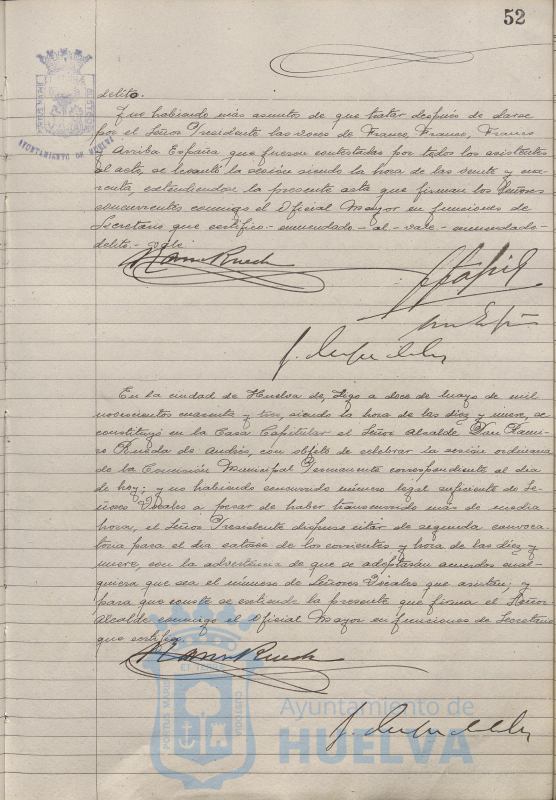 52
AYUNTAMIENTO DE HUELVA
delito.
Y no habiendo más asuntos de que tratar después de darse
por el Señor Presidente las voces de Franco, Franco, Franco
y Arriba España que fueron contestadas por todos los asistentes
al acto, se levantó la sesión siendo la hora de las veinte y cua-
renta, extendiéndose la presente acta que firman los Señores
concurrentes conmigo el Oficial Mayor en funciones de
Secretario que certifico.- enmendado - al - vale - enmendado-
delito - vale.
En la ciudad de Huelva, digo a doce de Mayo de mil
novecientos cuarenta y tres, siendo la hora de las diez y nueve, se
constituyó en la Casa Capitular el Señor Alcalde Don Rami-
ro Rueda de Andrés, con objeto de celebrar la sesión ordinaria
de la Comisión Municipal Permanente correspondiente al día
de hoy; y no habiendo concurrido número legal suficiente de Se-
ñores Vocales a pesar de haber transcurrido más de media
hora, el Señor Presidente dispuso citar de segunda convoca-
toria para el día catorce de los corrientes y hora de las diez y
nueve, con la advertencia de que se adoptarán acuerdos cual-
quiera que sea el número de Señores Vocales que asistan; y
para que conste se extiende la presente que firma el Señor
Alcalde conmigo el Oficial Mayor en funciones de Secretario
que certifico.
Ayuntamiento de
HUELVA